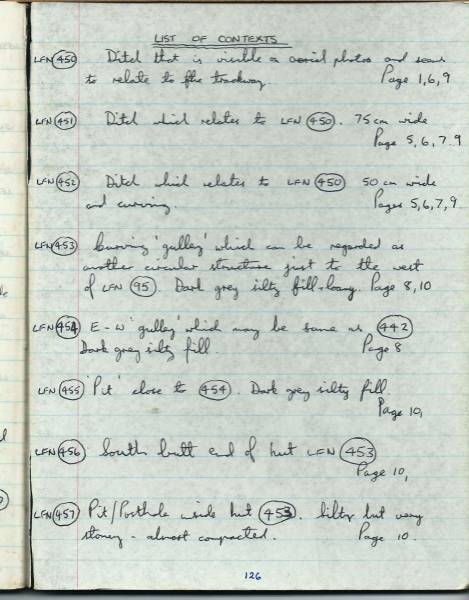 LIST OF CONTEXTS
LFN 450 Ditch that is visible on aerial photos and seems
to relate to the trackway. Page 1,6,9
LFN 451 Ditch which relates to LFN 450. 75cm wide
Page 5,6,7.9
LFN 452 Ditch which relates to LFN 450 50 cm wide
and curving. Pages 5,6,7,9
LFN 453 Curving 'gulley' which can be regarded as
another circular structure just to the west
of LFN 95. Dark grey silty fill. Page 8,10
LFN 454 E-W 'gulley' which may be same as 442
Dark grey silty fill. Page 8
LFN 455 'Pit' close to 454. Dark grey silty fill.
Page 10,
LFN 456 South butt end of hut LFN 453
Page 10,
LFN 457 Pit/Posthole inside hut 453. Silty but very
stoney - almost compacted. Page 10.
126